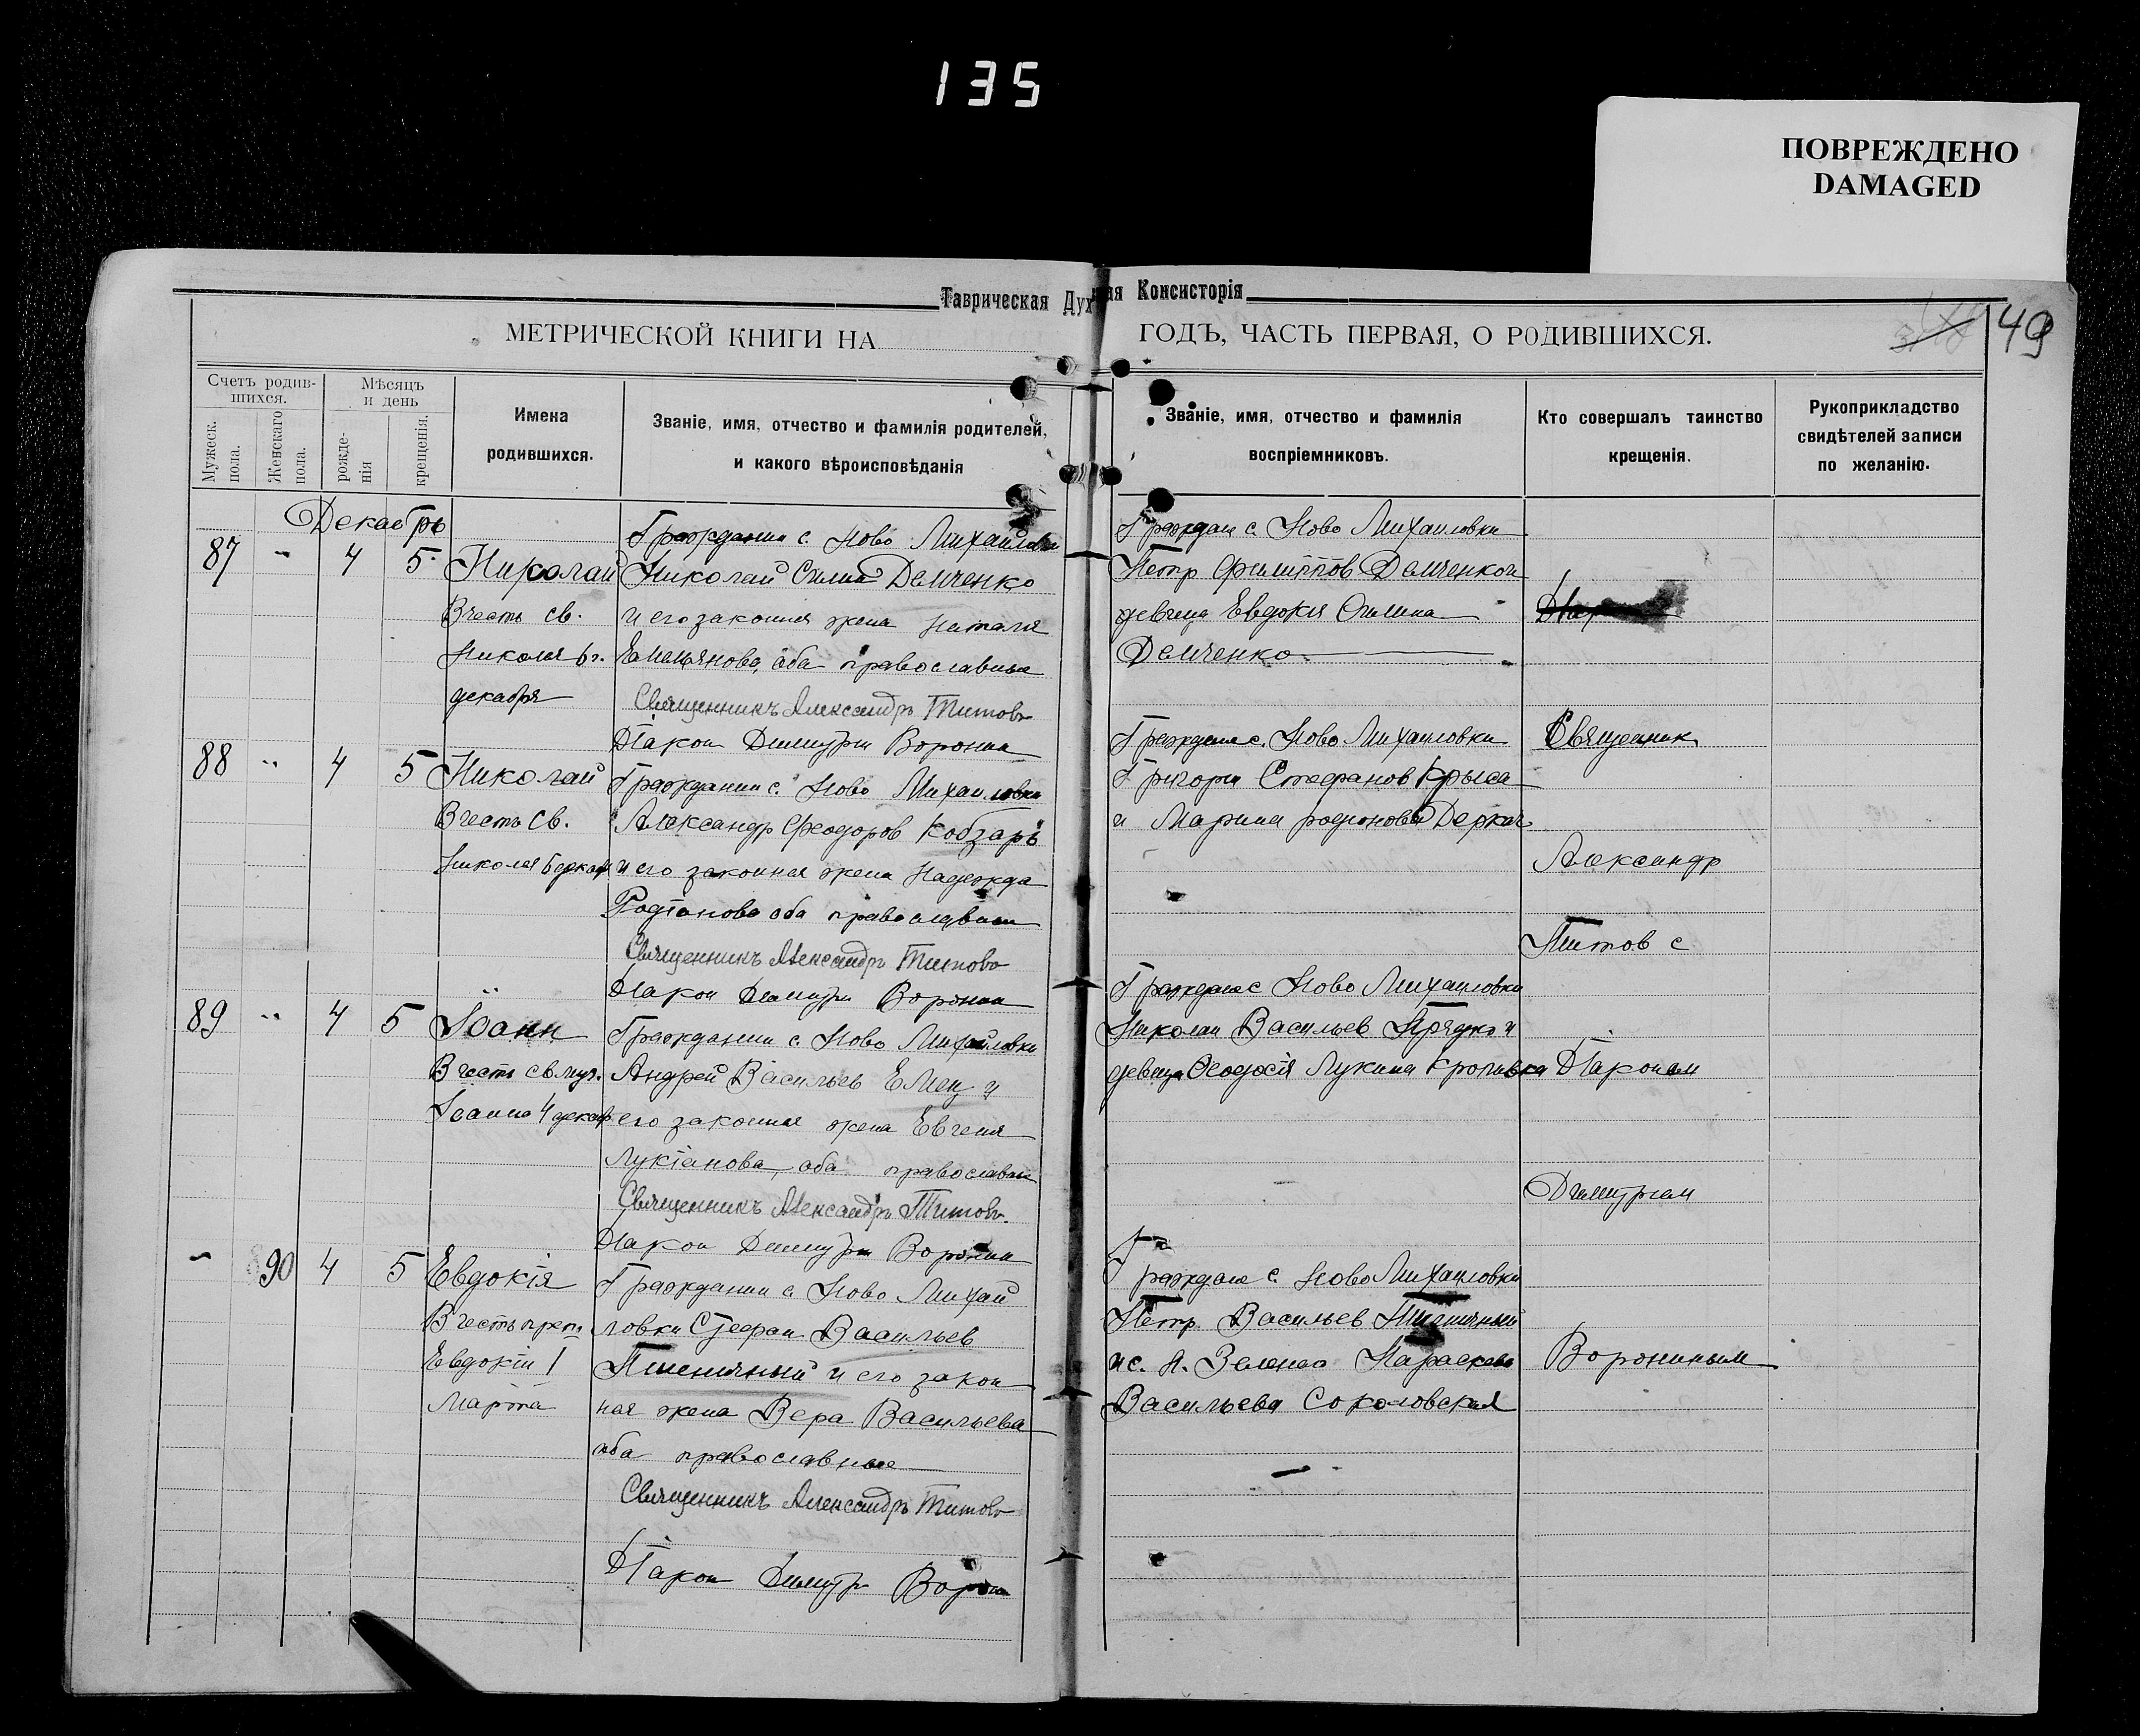 135
ПОВРЕЖДЕНО
DAMAGED
Таврическая Дух ная Консисторія
МЕТРИЧЕСКОЙ КНИГИ НА ГОДЪ, ЧАСТЬ ПЕРВАЯ, О РОДИВШИХСЯ.
49
Счетъ родив-
шихся.
Мужеск. пола.
Женскаго пола.
Мѣсяцъ
и день
рожде-
нія
крещенія.
Имена
родившихся.
Званіе, имя, отчество и фамилія родителей,
и какого вѣроисповѣданія
Званіе, имя, отчество и фамилія
воспріемниковъ.
Кто совершалъ таинство
крещенія.
Рукоприкладство
свидѣтелей записи
по желанію.
Декабрь
87 - 4 5
Николай
В честь св.
Николая 6 г.
декабря
Гражданин с. Ново Михайловки
Николай Силин Демченко
и его законная жена Наталия
Емельянова, оба православные
Священникъ Александръ Титовъ
Діакон Димитри Воронин
Граждане с. Ново Михаиловки
Петр Филиппов Демченко и
девица Евдокия Силина
Демченко
88 " 4 5
Николай
В честь св.
Николая 6 декаб
Гражданин с. Ново Михаиловки
Александр Феодоров Кобзарь
и его законная жена Надежда
Родіонова оба православные
Священникъ Александръ Титовъ
Діакон Димитри Воронин
Граждане с. Ново Михаиловки
Григори Стефанов Крыса
и Марина Родионова Деркач
89 " 4 5
Іоанн
В честь св. муч.
Іоанна 4 декаб
Гражданин с. Ново Михайловки
Андрей Васильев Елец и
его законная жена Евгения
Лукіанова, оба православные
Священникъ Александръ Титовъ.
Діакон Димитри Воронин
Граждане с Ново Михаиловки
Николаи Васильев Прядко и
девица Феодосія Лукина Кропивка
- 90 4 5
Евдокія
В честь преп
Евдокіи 1
Марта
Гражданин с Ново Михай
ловки Стефан Васильев
Пшеничный и его закон
ная жена Вера Васильева
оба православные
Священникъ Александръ Титовъ
Діакон Димитри Ворон
Граждане с. Ново Михаиловки
Петр Васильев Пшеничный
и с. Н. Зеленаа Параскева
Васильева Соколовская
Священник
Александр
Титов с
Діаконом
Димитрием
Ворониным